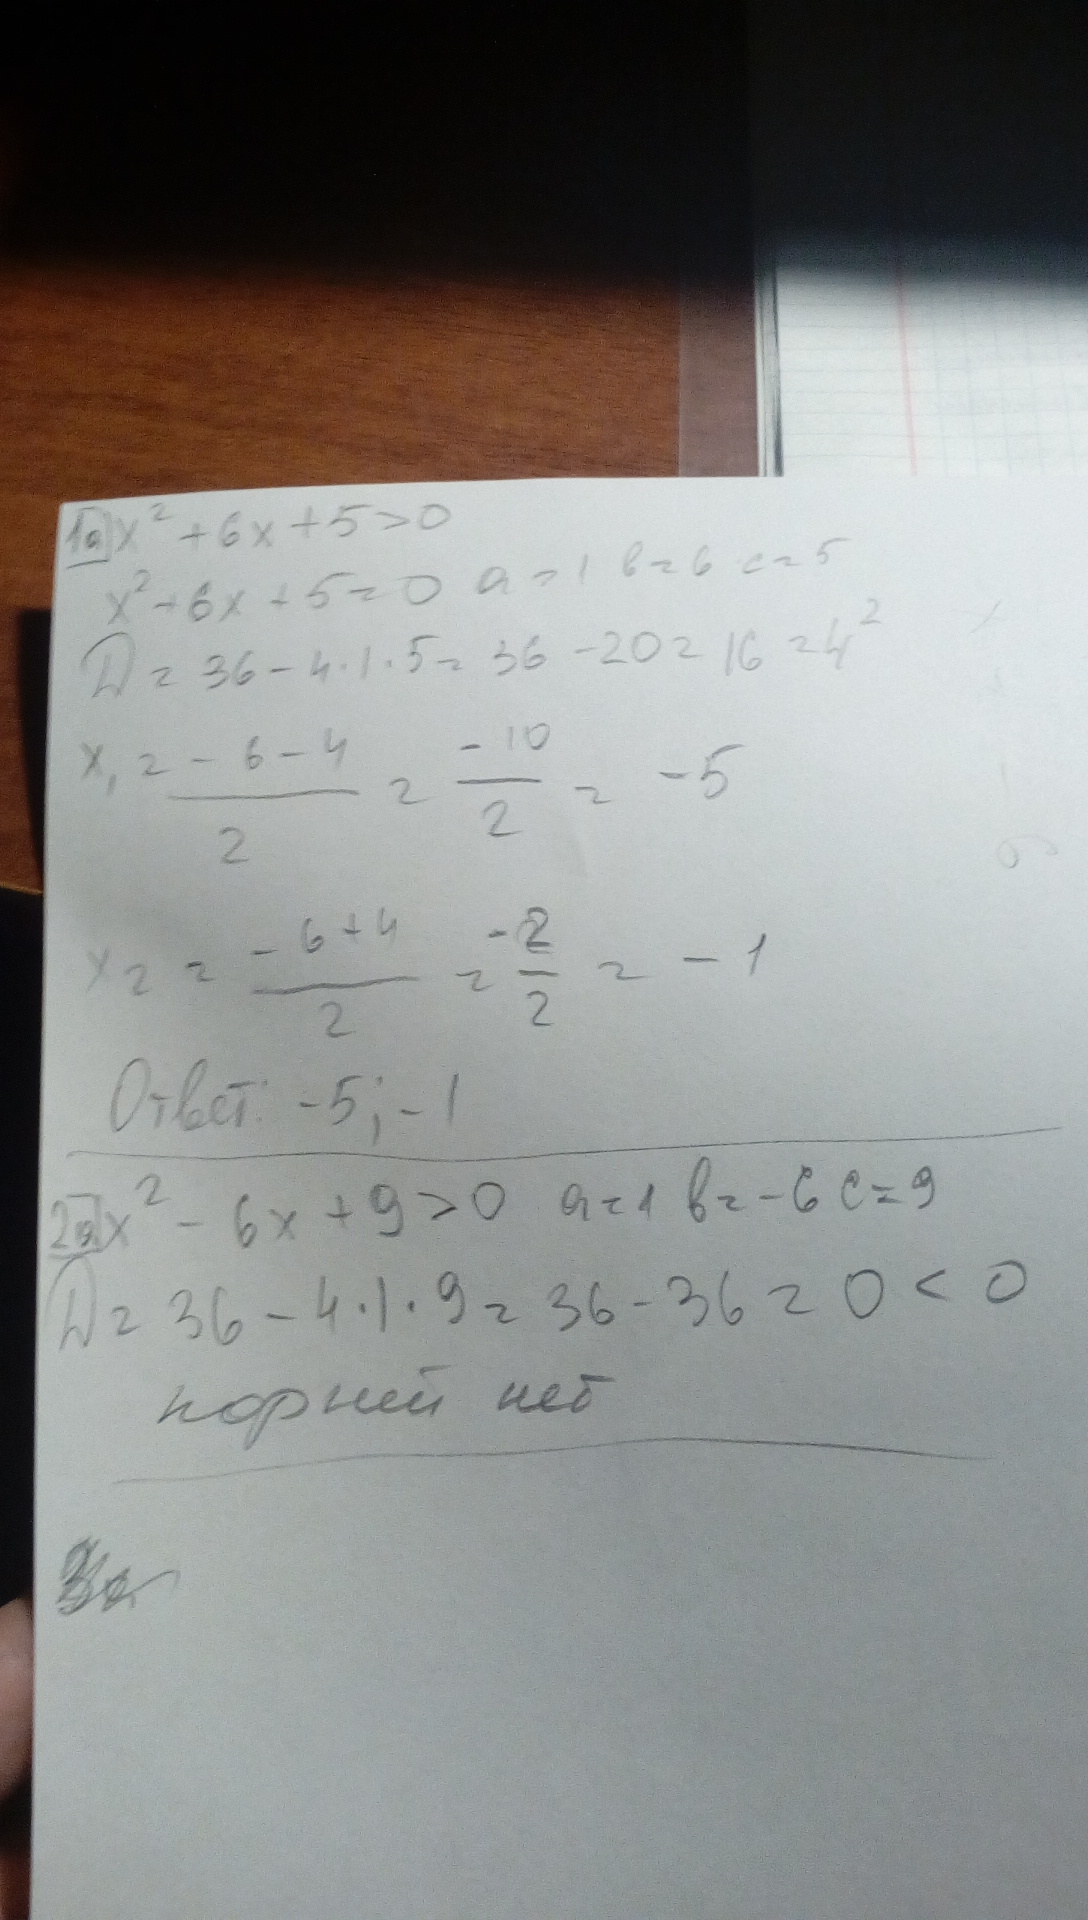 1а) x² + 6x + 5 > 0
x² + 6x + 5 = 0 a = 1 b = 6 c = 5
D = 36 - 4·1·5 = 36 - 20 = 16 = 4²
x₁ = (-6-4)/2 = -10/2 = -5
x₂ = (-6+4)/2 = -2/2 = -1
Ответ: -5; -1
2а) x² - 6x + 9 > 0 a = 1 b = -6 c = 9
D = 36 - 4·1·9 = 36 - 36 = 0 < 0
корней нет